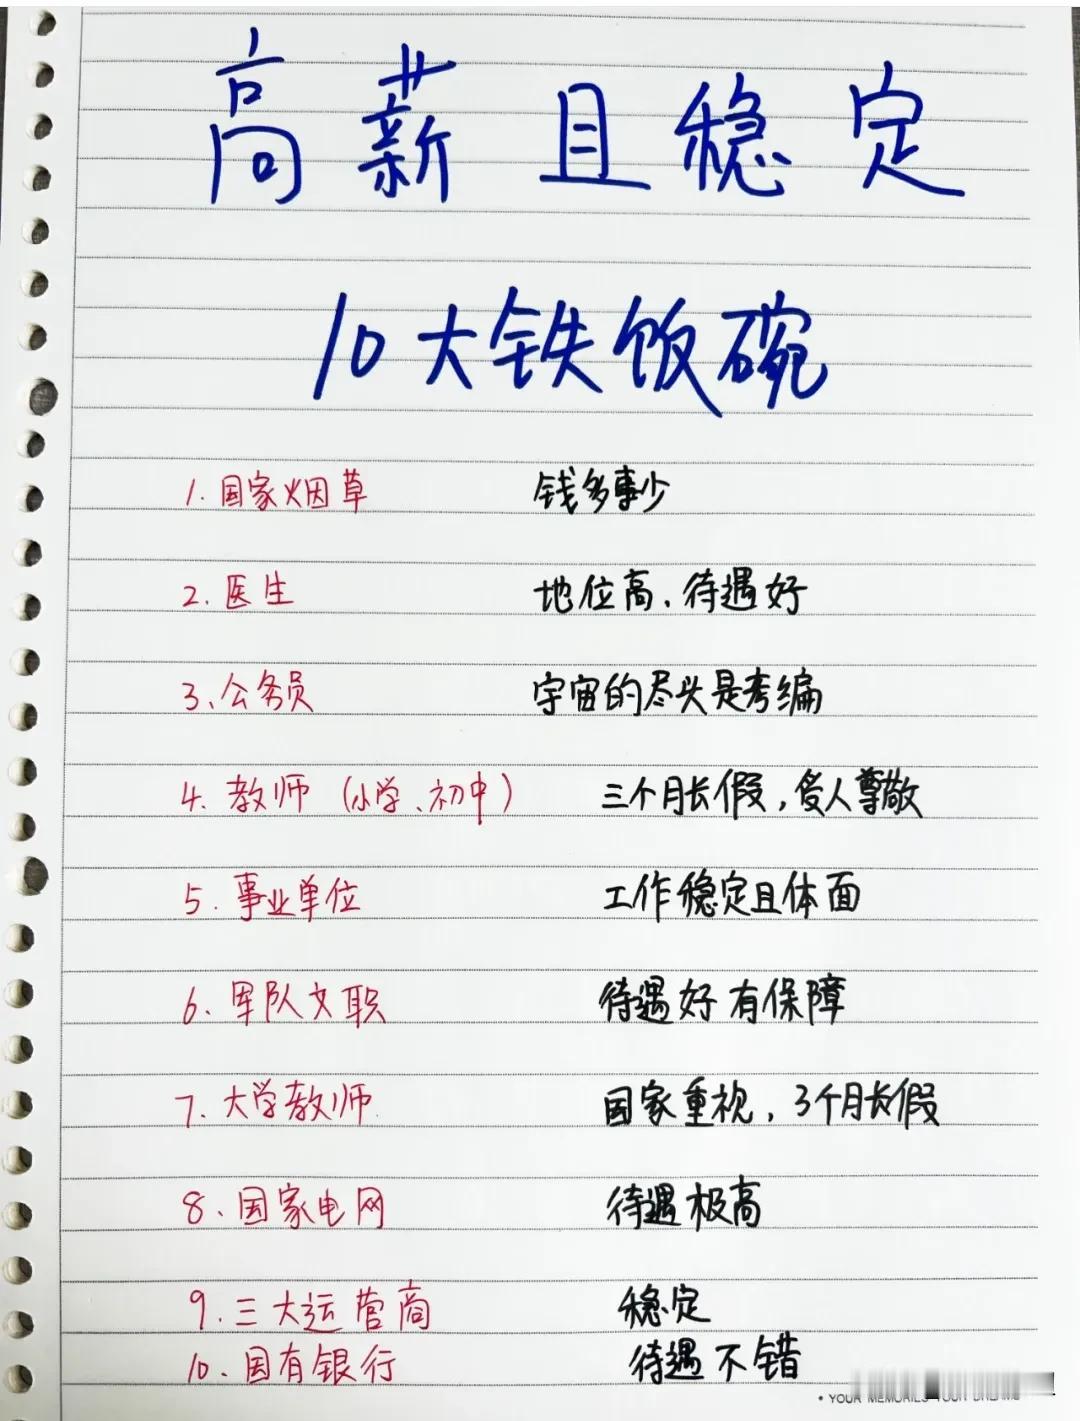 高薪且稳定
10大铁饭碗
1.国家烟草 钱多事少
2.医生 地位高、待遇好
3、公务员 宇宙的尽头是考编
4.教师(小学、初中) 三个月长假,受人尊敬
5.事业单位 工作稳定且体面
6.军队文职 待遇好有保障
7.大学教师 国家重视,3个月长假
8、国家电网 待遇极高
9.三大运营商 稳定
10.国有银行 待遇不错
• YOUR MEMORIES YOUR